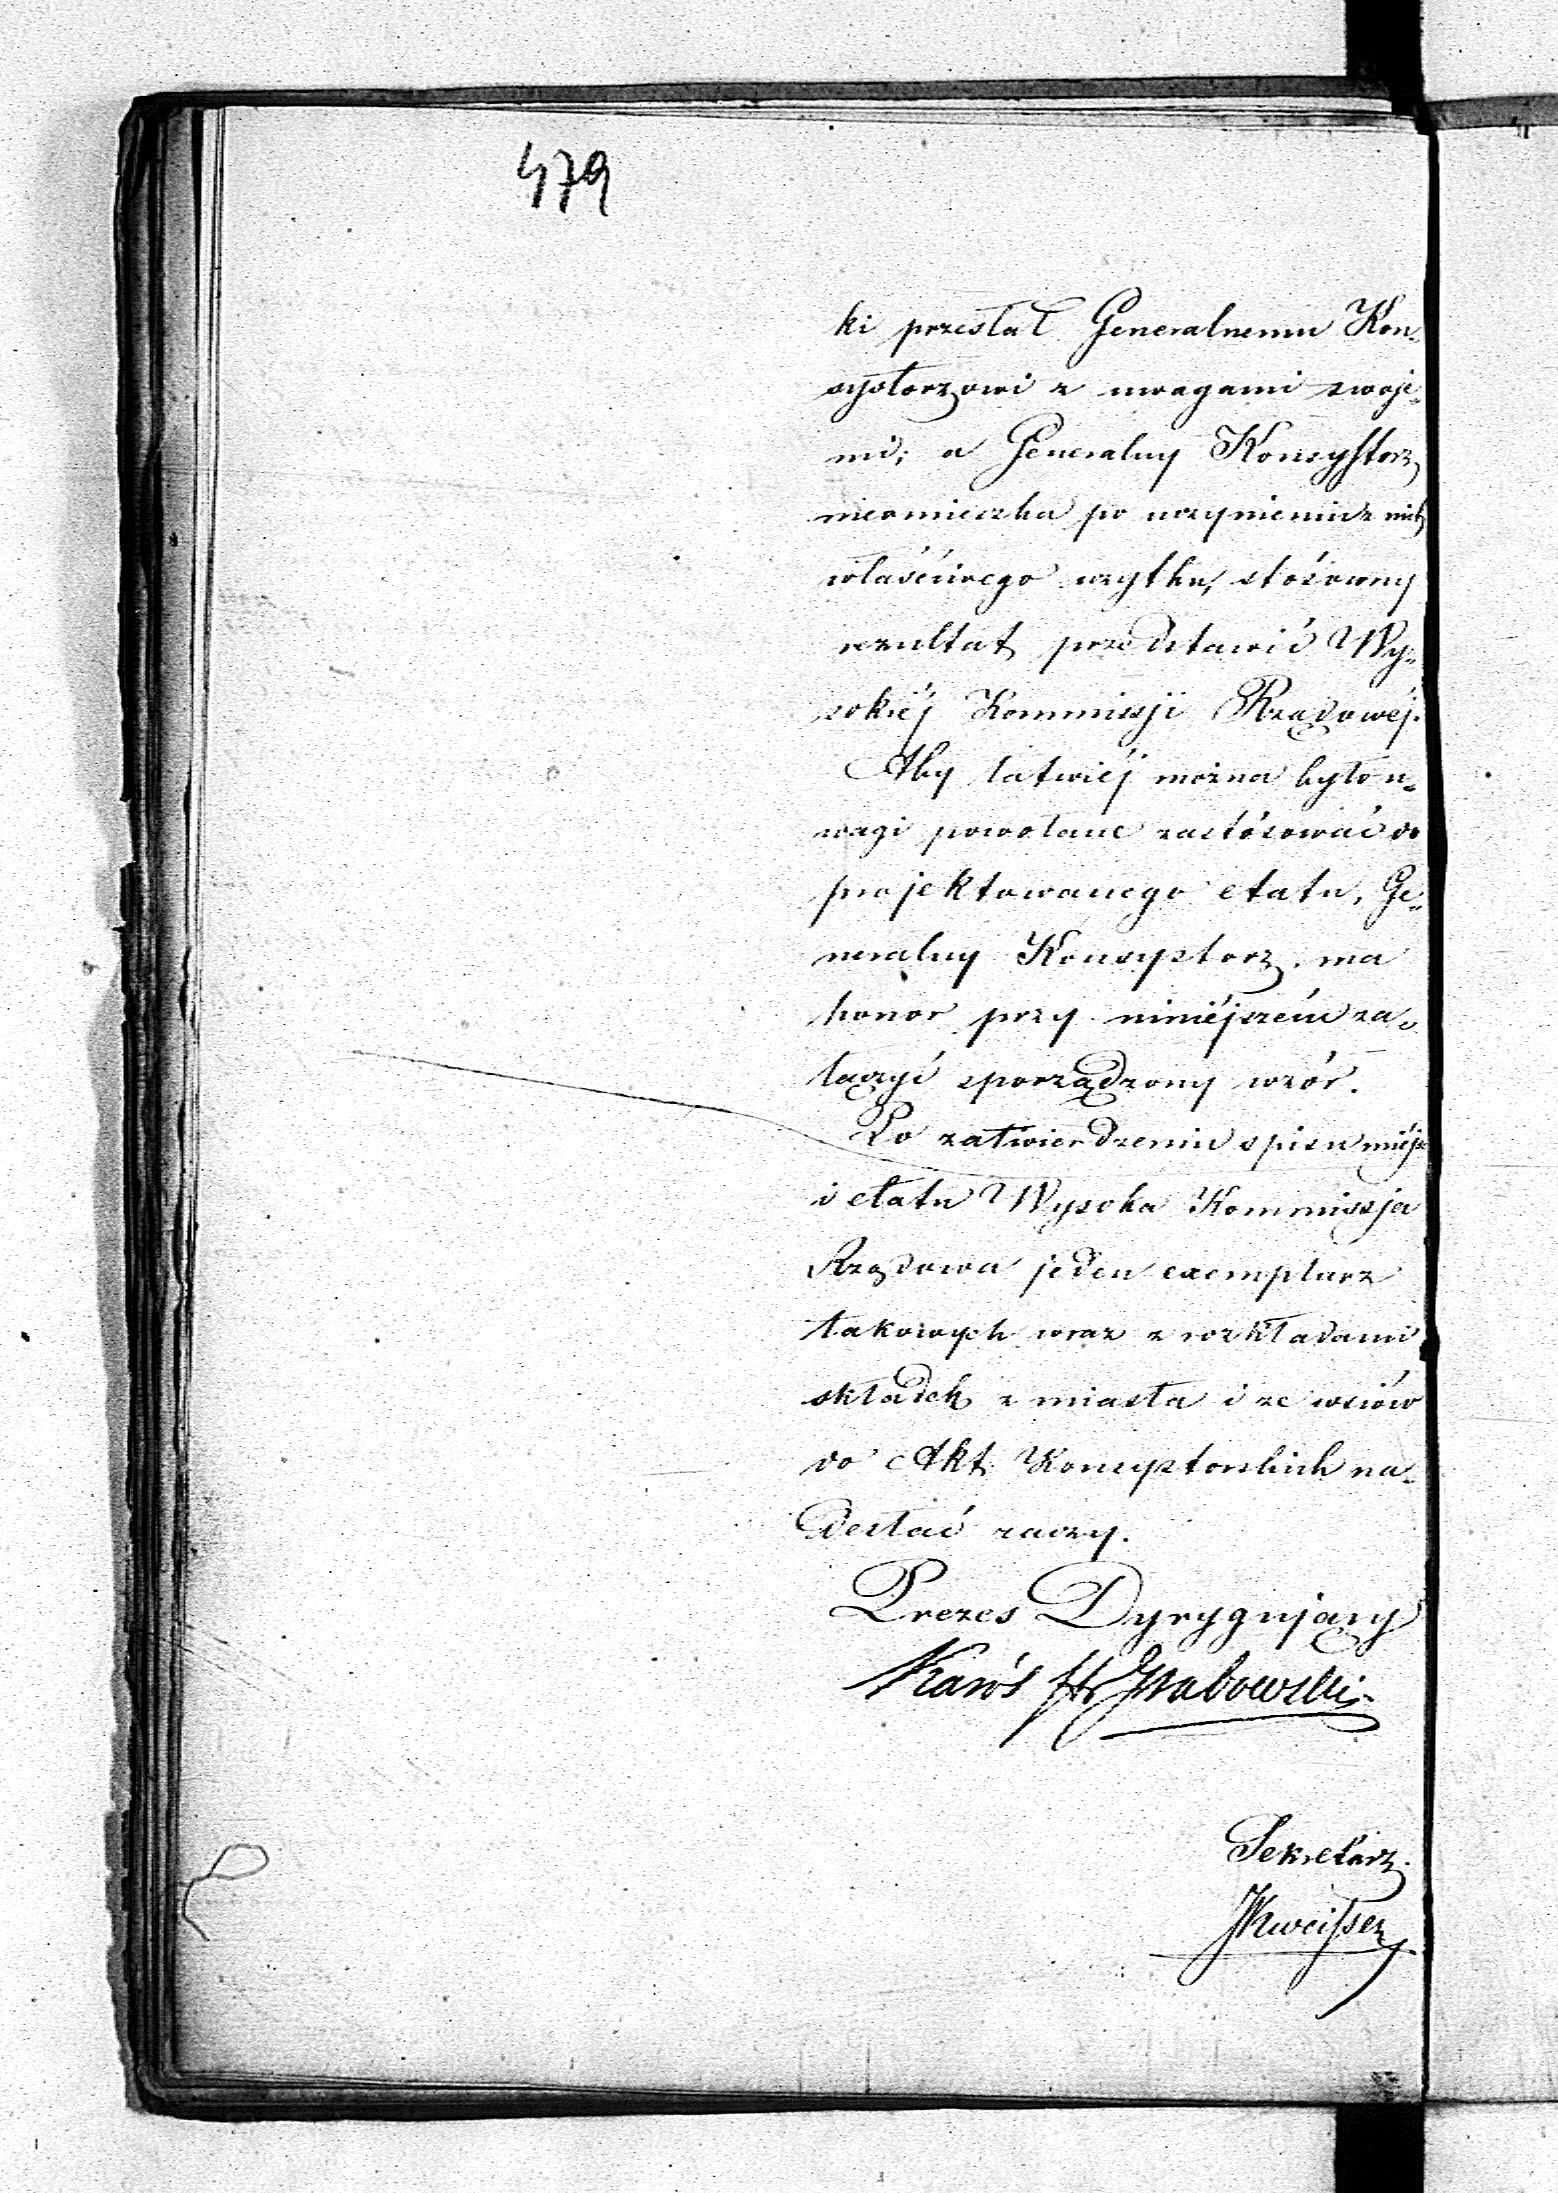 479
ki przesłał Generalnemu Kon-
systorzowi z uwagami swoje-
mi; a Generalny Konsystorz
nieomieszka po uczynieniu z nich
właściwego użytku, stósowny
rezultat przedstawić Wy-
sokiéj Kommissji Rządowéj.
Aby łatwiéj można było u-
wagi powołane zastósować do
projektowanego etatu, Ge-
neralny Konsystorz, ma
honor przy niniéjszém za-
łączyć sporządzony wzór.
Po zatwierdzeniu spisu miéjsc
i etatu Wysoka Kommissja
Rządowa jeden exemplarz
takowych wraz z rozkładami
składek z miasta i ze wsiów
do Akt Konsystorskich na-
desłać raczy.
Prezes Dyrygujący
Karól Hr Grabowski
Sekretarz
JKweisser